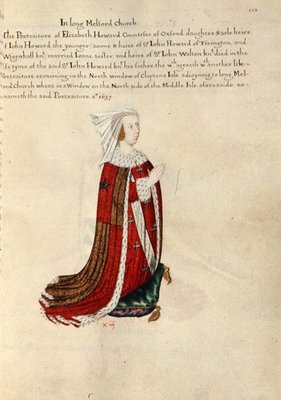 In long Melford Church:
The Portraiture of Elizabeth Howard Countesse of Oxford daughter & sole heire
of John Howard the younger: sonne & heere of Sr. John Howard of
Wigenhall kt.; married Ioane sister and heere of Sr. John Walton kt. died in the
life tyme of the said Sr. John Howard kt. his father. the wch. agreeth wth. another like
Portraiture remayning in the North window of Cloptons Isle adioyning to long Mel-
ford Church where in a Window on the North side of the Middle Isle aforesaide re-
maineth the said Portraiture ao. 1637.